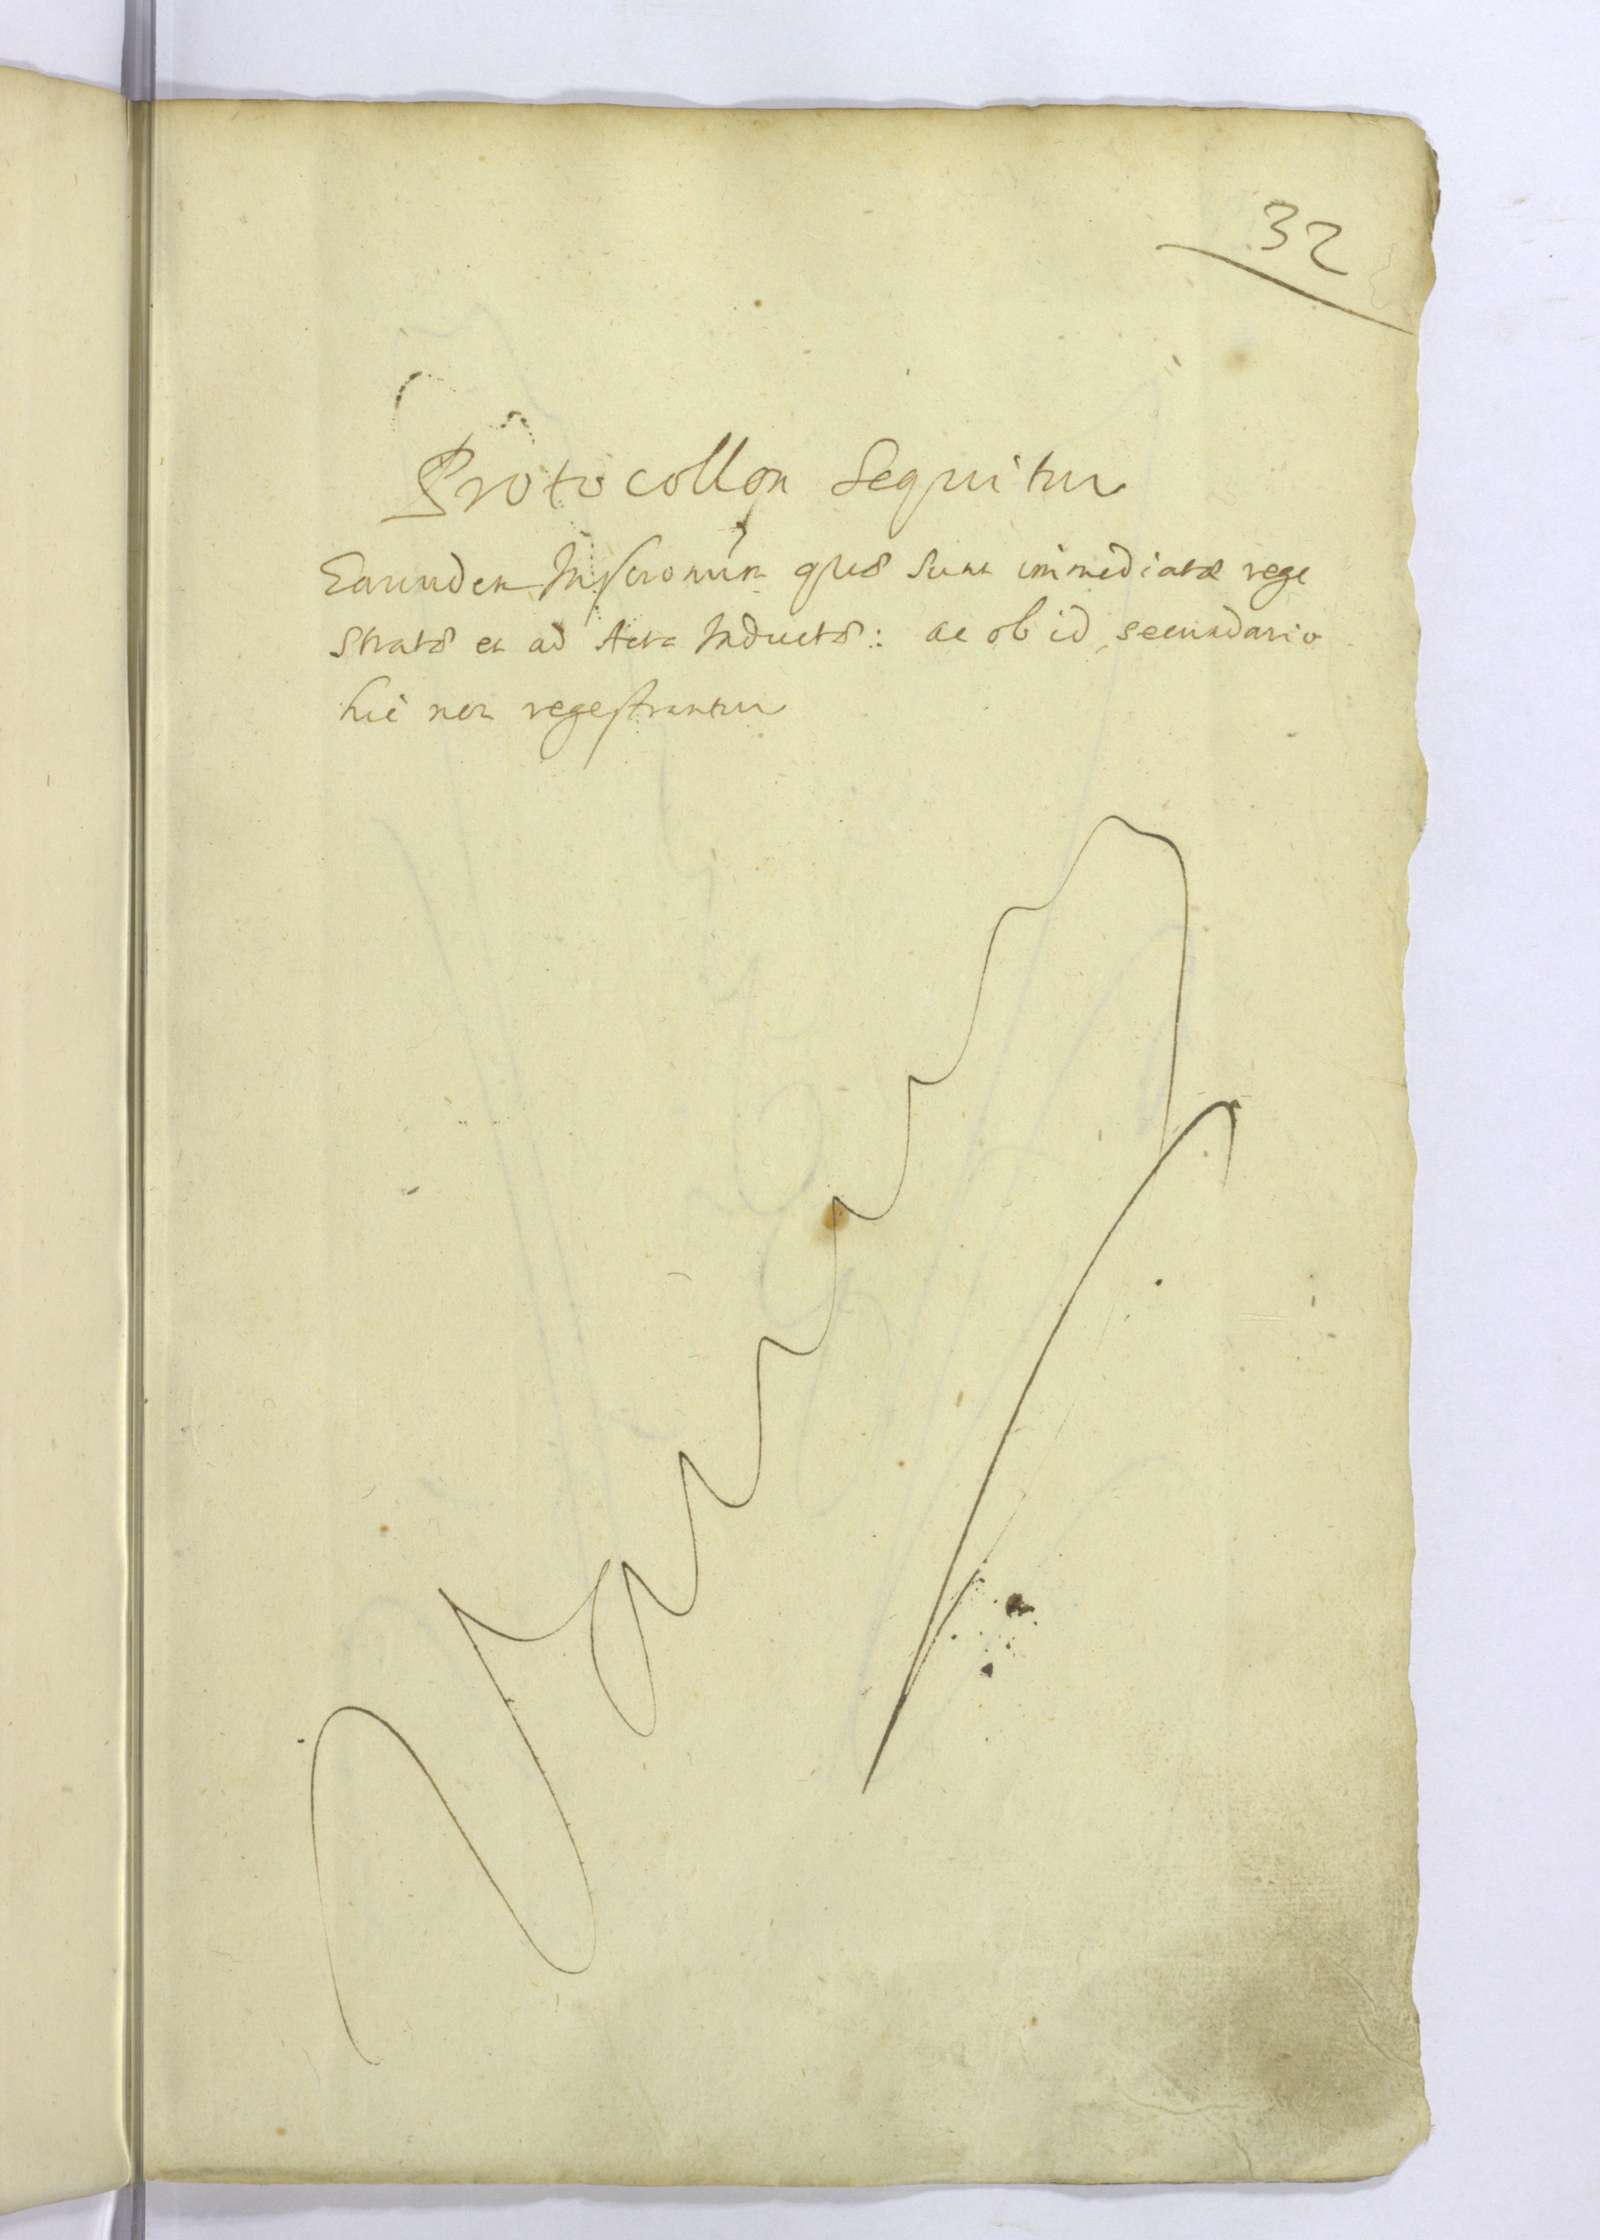 32
Protocollon Sequitur
Earundem Inscronum quæ sunt immediatæ rege
stratæ et ad Acta Inductæ: ac ob id secundario
hic non regestrantur
Vacat